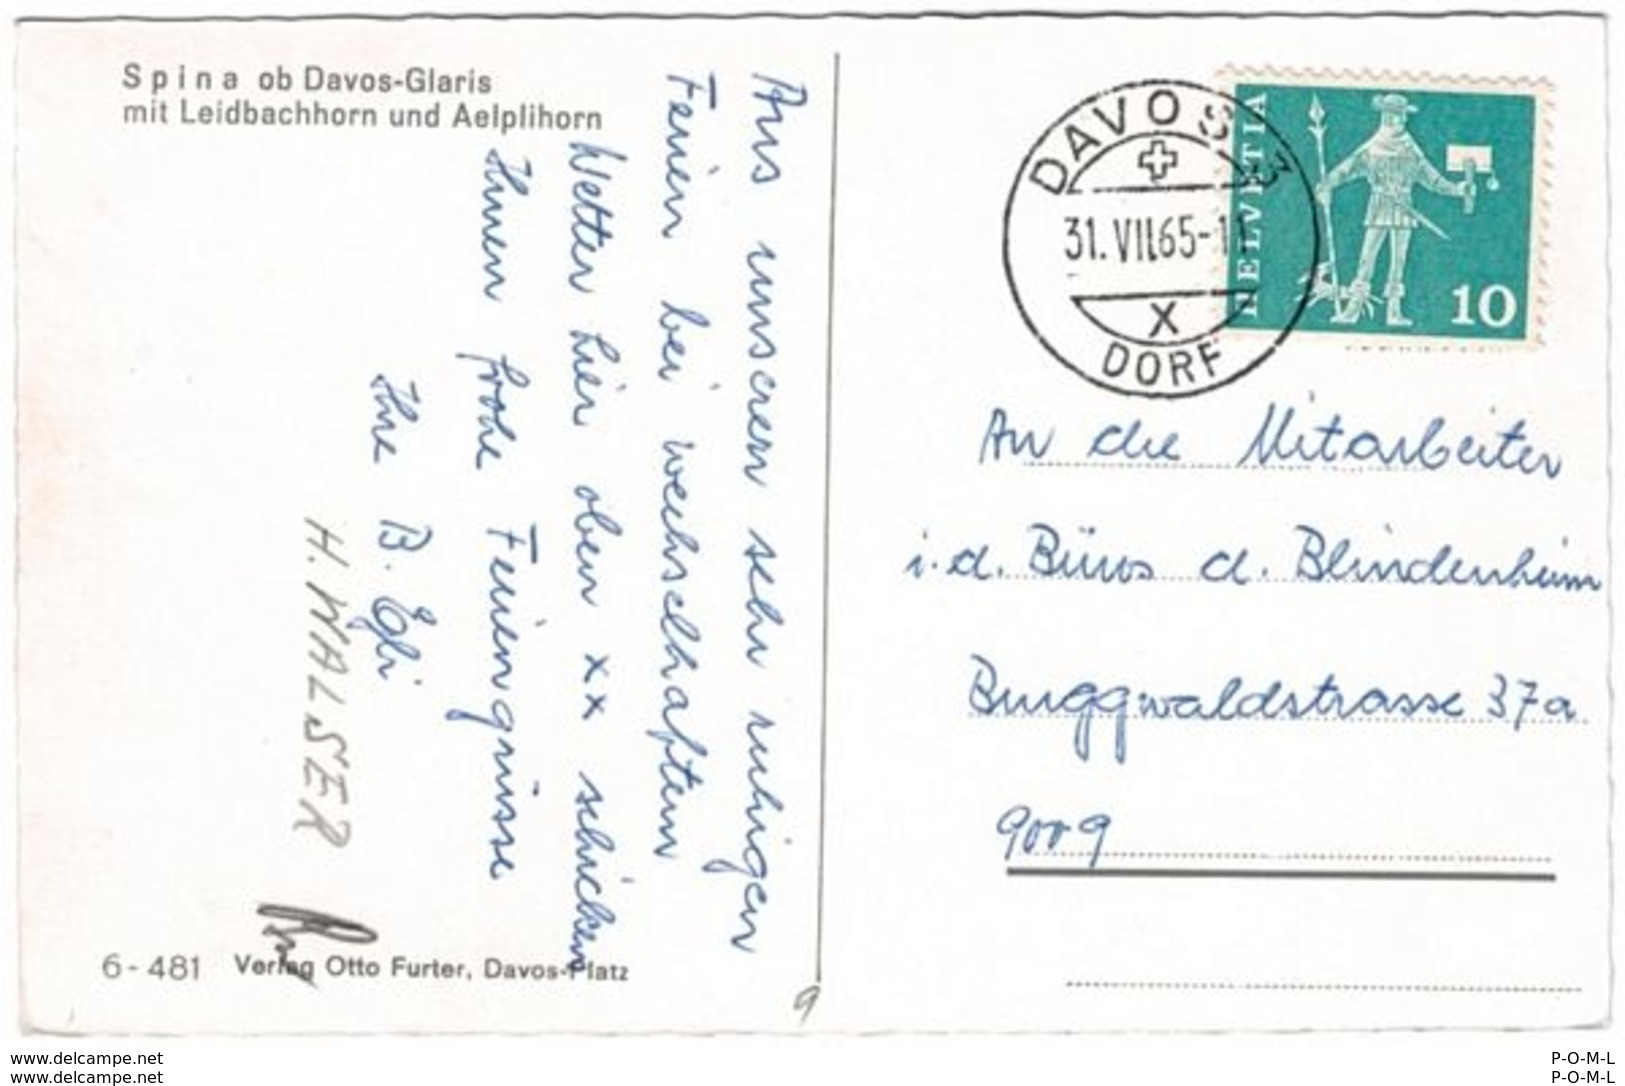 Spina ob Davos-Glaris
mit Leidbachhorn und Aelplihorn
Aus unseren sehr ruhigen
Ferien bei wechselhaftem
Wetter hier oben xx schicken
Ihnen frohe Feriengrüsse
Ihre B. Egli
H. WALSER
6-481 Verlag Otto Furter, Davos-Platz
9
DAVOS 3
31.VII.65-11
X
DORF
HELVETIA
10
An die Mitarbeiter
i.d. Büros d. Blindenheim
Burggwaldstrasse 37a
9009
www.delcampe.net
www.delcampe.net
P-O-M-L
P-O-M-L